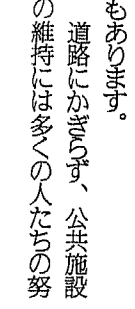 もあります。
道路にかぎらず、公共施設
の維持には多くの人たちの努